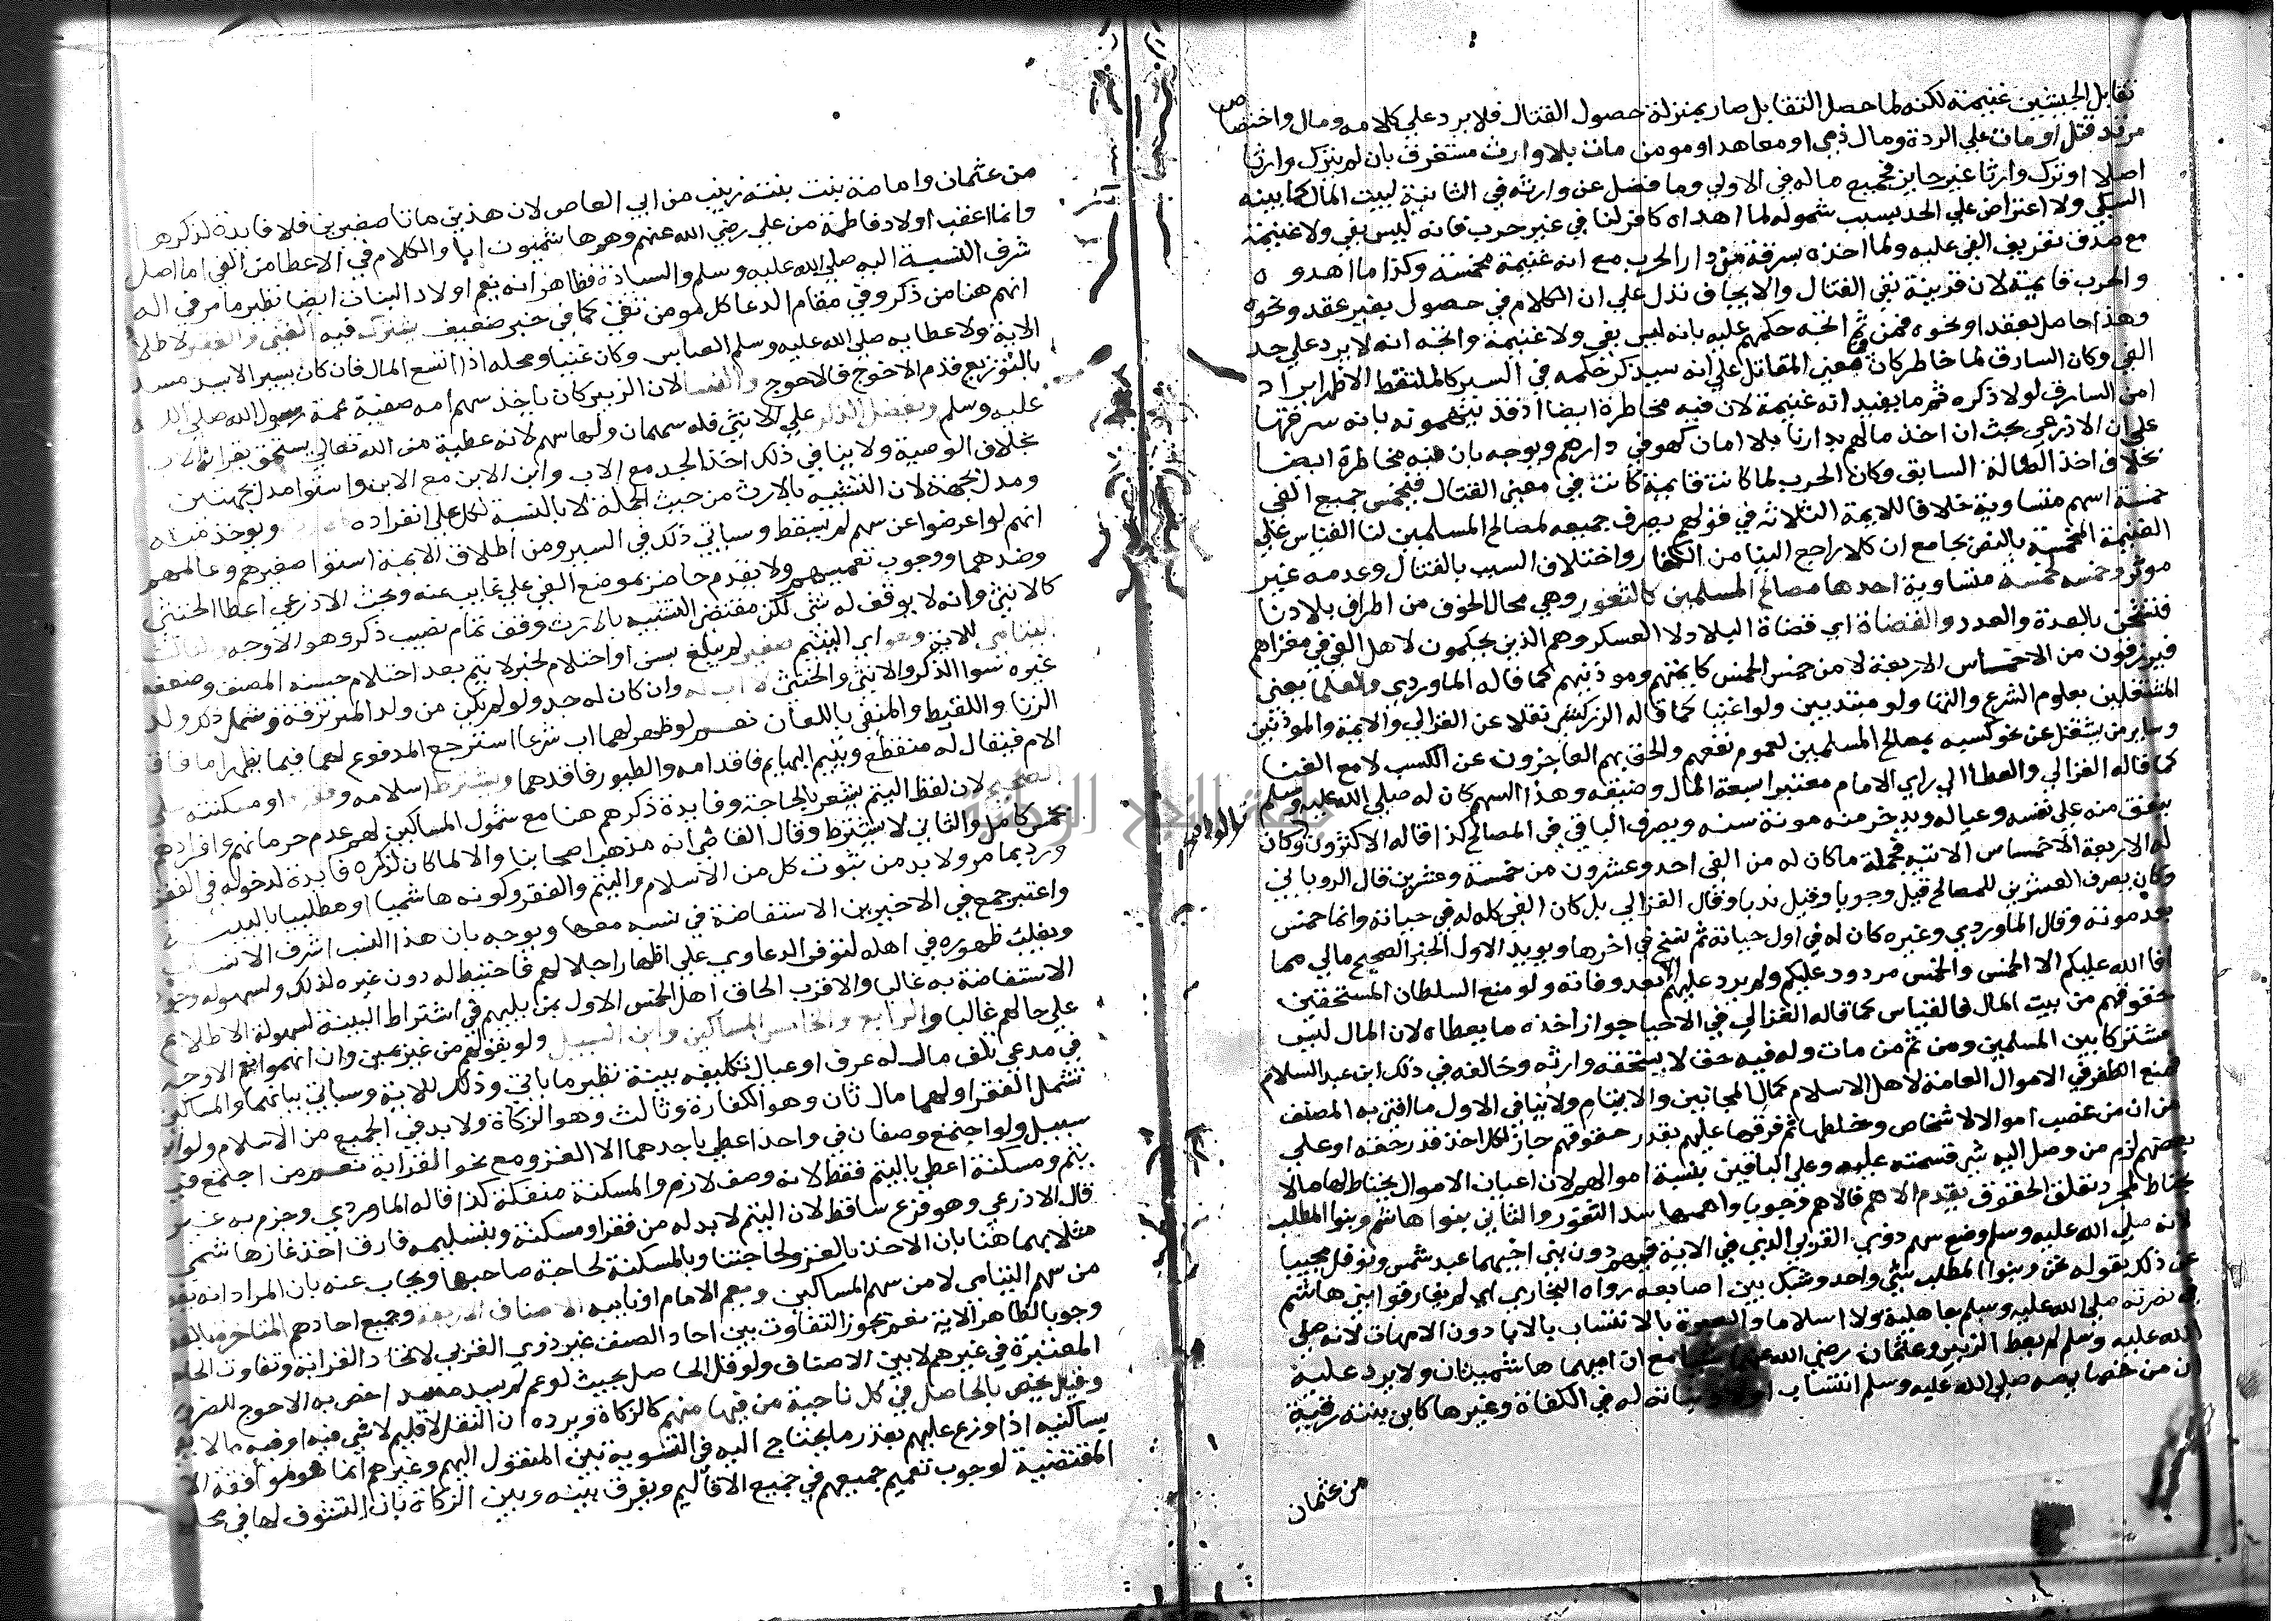 تقابل الجيشين غنيمة لكنه لما حصل التقابل صار بمنزلة حصول القتال فلا يرد علي كلامه ومال واختصاص
مرتد قتل او مات علي الردة ومال ذمي او معاهد او مومن مات بلا وارث مستغرق بان لم يترك وارثا
اصلا او ترك وارثا غير حايز فجميع ماله في الاولي وما فضل عن وارثه في الثانية لبيت المال كما بينه
السبكي ولا اعتراض علي الحد بسبب شموله لما اهداه كافر لنا في غير حرب فانه ليس بفي ولا غنيمة
مع صدق تعريف الفي عليه ولما اخذه بسرقة من دار الحرب مع انه غنيمة مخمسة وكذا ما اهدوه
والحرب قايمة لان قرينة نفي القتال والايجاف تدل علي ان الكلام في حصول بغير عقد ونحوه
وهذا حاصل بعقد او نحوه فمن ثم اتجه حكمهم عليه بانه ليس بفي ولا غنيمة واتجه انه لا يرد علي حد
الفي وكان السارق لما خاطر كان في معني المقاتل علي انه سيذكر حكمه في السير كالملتقط الاظهر ايراد
امن السارق لولا ذكره ثم ما يفيد انه غنيمة لان فيه مخاطرة ايضا اذ قد يتهمونه بانه سرقها
علي ان الاذرعي بحث ان اخذ مالهم بدارنا بلا امان كهو في دارهم ويوجه بان فيه مخاطرة ايضا
بخلاف اخذ الضالة السابق وكان الحرب لما كانت قايمة كانت في معني القتال فيخمس جميع الفي
خمسة اسهم متساوية خلافا للايمة الثلاثة في قولهم يصرف جميعه لمصالح المسلمين لنا القياس علي
الغنيمة المخمسة بالنص بجامع ان كلا راجع الينا من الكفار واختلاف السبب بالقتال وعدمه غير
موثر وخمسه لخمسة متساوية احدها مصالح المسلمين كالثغور وهي محال الخوف من اطراف بلادنا
فتشحن بالعدة والعدد والقضاة اي قضاة البلاد لا العسكر وهم الذين يحكمون لاهل الفي في مغزاهم
فيرزقون من الاخماس الاربعة لا من خمس الخمس كايمتهم وموذنيهم كما قاله الماوردي والعلما يعني
المشتغلين بعلوم الشرع والاتها ولو مبتديين ولو اغنيا كما قاله الزركشي نقلا عن الغزالي والايمة والموذنين
وساير من يشتغل عن نحو كسبه بمصالح المسلمين لعموم نفعهم والحق بهم العاجزون عن الكسب لا مع الغنا
كما قاله الغزالي والعطا الي راي الامام معتبرا سعة المال وضيقه وهذا السهم كان له صلي الله عليه وسلم
ينفق منه علي نفسه وعياله ويدخر منه مونة سنة ويصرف الباقي في المصالح كذا قاله الاكثرون وكان
له الاربعة الاخماس الاتية فجملة ما كان له من الفي احد وعشرون من خمسة وعشرين قال الروياني
وكان يصرف العشرين للمصالح قيل وجوبا وقيل ندبا وقال الغزالي بل كان الفي كله له في حياته وانما خمس
بعد موته وقال الماوردي وغيره كان له في اول حياته ثم نسخ في اخرها ويويد الاول الخبر الصحيح مالي مما
افا الله عليكم الا الخمس والخمس مردود عليكم ولم يرد عليهم الا بعد وفاته ولو منع السلطان المستحقين
حقوقهم من بيت المال فالقياس كما قاله الغزالي في الاحيا جواز اخذه ما يعطاه لان المال ليس
مشتركا بين المسلمين ومن ثم من مات وله فيه حق لا يستحقه وارثه وخالفه في ذلك ابن عبد السلام
فمنع الظفر في الاموال العامة لاهل الاسلام كمال المجانين والايتام ولا ينافي الاول ما افتي به المصنف
من ان من غصب اموالا لاشخاص وخلطها ثم فرقها عليهم بقدر حقوقهم جاز لكل اخذ قدر حقه او علي
بعضهم لزم من وصل اليه شي قسمته عليه وعلي الباقين بنسبة اموالهم لان اعيان الاموال يحتاط لها مالا
يحتاط لمجرد تعلق الحقوق يقدم الاهم فالاهم وجوبا واهمها سد الثغور والثاني بنوا هاشم وبنوا المطلب
لانه صلي الله عليه وسلم وضع سهم ذوي القربي الذي في الاية فيهم دون بني اخيهما عبد شمس ونوفل مجيبا
عن ذلك بقوله نحن وبنوا المطلب شي واحد وشبك بين اصابعه رواه البخاري اي لم يفارقوا بني هاشم
في نصرته صلي الله عليه وسلم جاهلية ولا اسلاما والعبرة بالانتساب بالابا دون الامهات لانه صلي
الله عليه وسلم لم يعط الزبير وعثمان رضي الله عنهما شيا مع ان اميهما هاشميتان ولا يرد عليه
ان من خصايصه صلي الله عليه وسلم انتساب اولاد بناته له في الكفاة وغيرها كابن بنته رقية
من عثمان
من عثمان وامامة بنت بنته زينب من ابي العاص لان هذين ماتا صغيرين فلا فايدة لذكرهما
وانما اعقب اولاد فاطمة من علي رضي الله عنهم وهم هاشميون ابا والكلام في الاعطا من الفي اما اصل
شرف النسبة اليه صلي الله عليه وسلم والسيادة فظاهر انه يعم اولاد البنات ايضا نظير ما مر في اله
انهم هنا من ذكر وفي مقام الدعا كل مومن تقي كما في خبر ضعيف يشترك فيه الغني والفقير لاطلاق
الاية ولاعطايه صلي الله عليه وسلم العباس وكان غنيا ومحله اذا اتسع المال فان كان يسيرا لا يسد مسدا
بالتوزيع قدم الاحوج فالاحوج والنسا لان الزبير كان ياخذ سهم امه صفية عمة رسول الله صلي الله
عليه وسلم ويفضل الذكر علي الانثي فله سهمان ولها سهم لانه عطية من الله تعالي يستحق بقرابة الاب
بخلاف الوصية ولا ينافي ذلك اخذ الجد مع الاب وابن الابن مع الابن واستوا مدل بجهتين
ومدل بجهة لان التشبيه بالارث من حيث الجملة لا بالنسبة لكل علي انفراده ويوخذ منه
انهم لو اعرضوا عن سهم لم يسقط وسياتي ذلك في السير ومن اطلاق الاية استوا صغيرهم وعالمهم
وضدهما ووجوب تعميمهم ولا يقدم حاضر بموضع الفي علي غايب عنه وبحث الاذرعي اعطا الخنثي
كالانثي وانه لا يوقف له شي لكن مقتضي التشبيه بالارث وقف تمام نصيب ذكر وهو الاوجه والثالث
اليتامي للاية وهو اي اليتيم صغير لم يبلغ بسن او احتلام لخبر لا يتم بعد احتلام حسنه المصنف وضعفه
غيره سوا الذكر والانثي والخنثي لا اب له وان كان له جد ولو لم يكن من ولد المرتزقة وشمل ذكر ولد
الزنا واللقيط والمنفي باللعان نعم لو ظهر لهما اب شرعا استرجع المدفوع لهما فيما يظهر اما فاقد
الام فيقال له منقطع ويتيم البهايم فاقد امه والطيور فاقدهما ويشترط اسلامه وفقره او مسكنته علي
الصحيح لان لفظ اليتم يشعر بالحاجة وفايدة ذكرهم هنا مع شمول المساكين لهم عدم حرمانهم وافرادهم
بخمس كامل والثاني لا يشترط وقال القاضي انه مذهب اصحابنا والا لما كان لذكره فايدة لدخوله في الفقر
ورد بما مر ولا بد من ثبوت كل من الاسلام واليتم والفقر وكونه هاشميا او مطلبيا بالبينة
واعتبر جمع في الاخيرين الاستفاضة في نسبه معها ويوجه بان هذا النسب اشرف الانساب
ويغلب ظهوره في اهله لتوفر الدعاوي علي اظهار اجلالهم فاحتيط له دون غيره لذلك ولسهولة وجود
الاستفاضة به غالبا والاقرب الحاق اهل الخمس الاول بمن يليهم في اشتراط البينة لسهولة الاطلاع
علي حالهم غالبا والرابع والخامس المساكين وابن السبيل ولو بقولهم من غير يمين وان اتهموا نعم الاوجه
في مدعي تلف مال له عرف او عيال تكليفه بينة نظير ما ياتي وذلك للاية وسياتي بيانهما والمساكين
تشمل الفقرا ولهما مال ثان وهو الكفارة وثالث وهو الزكاة ولا بد في الجميع من الاسلام ولو ابن
سبيل ولو اجتمع وصفان في واحد اعطي باحدهما الا الغزو مع نحو القرابة نعم من اجتمع فيه
يتم ومسكنة اعطي باليتم فقط لانه وصف لازم والمسكنة منفكة كذا قاله الماوردي وجزم به غيره
قال الاذرعي وهو فرع ساقط لان اليتم لا بد له من فقر او مسكنة وبتسليمه فارق اخذ غاز هاشمي
مثلا بهما هنا بان الاخذ بالغزو لحاجتنا وبالمسكنة لحاجة صاحبها ويجاب عنه بان المراد انه يعطي
من سهم اليتامي لا من سهم المساكين ويعم الامام او نايبه الاصناف الاربعة وجميع احادهم المتاخرة بالعطا
وجوبا لظاهر الاية نعم يجوز التفاوت بين احاد الصنف غير ذوي القربي لاتحاد القرابة وتفاوت الحاجة
المعتبرة في غيرهم لا بين الاصناف ولو قل الحاصل بحيث لو عم لم يسد مسدا خص به الاحوج للضرورة
وقيل يختص بالحاصل في كل ناحية من فيها منهم كالزكاة ويرده ان النقل لاقليم لا شي فيه او فيه مالا يفي
بساكنيه اذا وزع عليهم بقدر ما يحتاج اليه في التسوية بين المنقول اليهم وغيرهم انما هو لموافقة الاية
المقتضية لوجوب تعميم جميعهم في جميع الاقاليم ويفرق بينه وبين الزكاة بان التشوف لها في محل